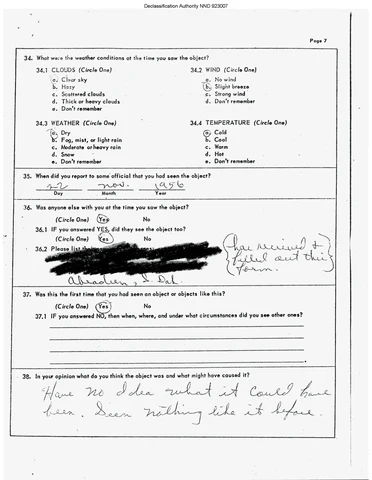 Declassification Authority NND 923007
Page 7
34. What were the weather conditions at the time you saw the object?
34.1 CLOUDS (Circle One) 34.2 WIND (Circle One)
a. Clear sky a. No wind
b. Hazy b. Slight breeze
c. Scattered clouds c. Strong wind
d. Thick or heavy clouds d. Don't remember
e. Don't remember
34.3 WEATHER (Circle One) 34.4 TEMPERATURE (Circle One)
a. Dry a. Cold
b. Fog, mist, or light rain b. Cool
c. Moderate or heavy rain c. Warm
d. Snow d. Hot
e. Don't remember e. Don't remember
35. When did you report to some official that you had seen the object?
22 nov. 1956
Day Month Year
36. Was anyone else with you at the time you saw the object?
(Circle One) Yes No
36.1 IF you answered YES, did they see the object too?
(Circle One) Yes No
36.2 Please list
(has received &
filled out this
form.)
Aberdeen, S. Dak.
37. Was this the first time that you had seen an object or objects like this?
(Circle One) Yes No
37.1 IF you answered NO, then when, where, and under what circumstances did you see other ones?
38. In your opinion what do you think the object was and what might have caused it?
Have no Idea what it could have
been. Seen nothing like it before.